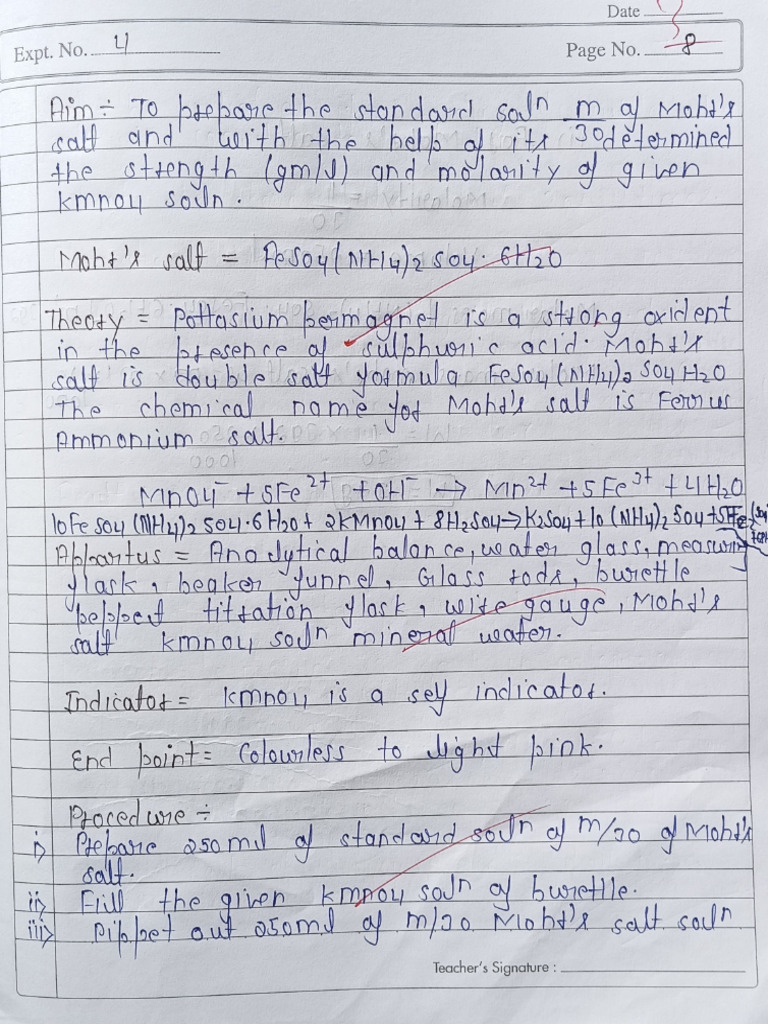 Date
Expt. No. 4
Page No. 8
Aim ÷ To prepare the standard soln m of Mohr's
salt and with the help of its 30 determined
the strength (gm/l) and molarity of given
kmno4 soln.
Mohr's salt = FeSo4(NH4)2 SO4. 6H2O
Theory = Pottasium permagnet is a strong oxident
in the presence of sulphuric acid. Mohr's
salt is double salt formula FeSo4(NH4)2 SO4 H2O
The chemical name for Mohr's salt is Ferrus
Ammonium salt.
MnO4- + 5Fe2+ + OH- → Mn2+ + 5Fe3+ + 4H2O
10FeSo4(NH4)2 SO4.6H2O + 2kMno4 + 8H2SO4 → K2SO4 + 10(NH4)2 SO4 + 5Fe2
Appartus = Analytical balance, water glass, measuring
flask, beaker funnel, Glass rods, burettle
peppert titration flask, wire gauge, Mohr's
salt kmno4 soln mineral water.
Indicator = kmno4 is a self indicator.
End point = Colourless to light pink.
Procedure ÷
i) Prepare 250ml of standard soln of m/20 of Mohr's
salt.
ii) Fill the given kmno4 soln of burettle.
iii) Pippet out 250ml of m/20 Mohr's salt soln
Teacher's Signature :